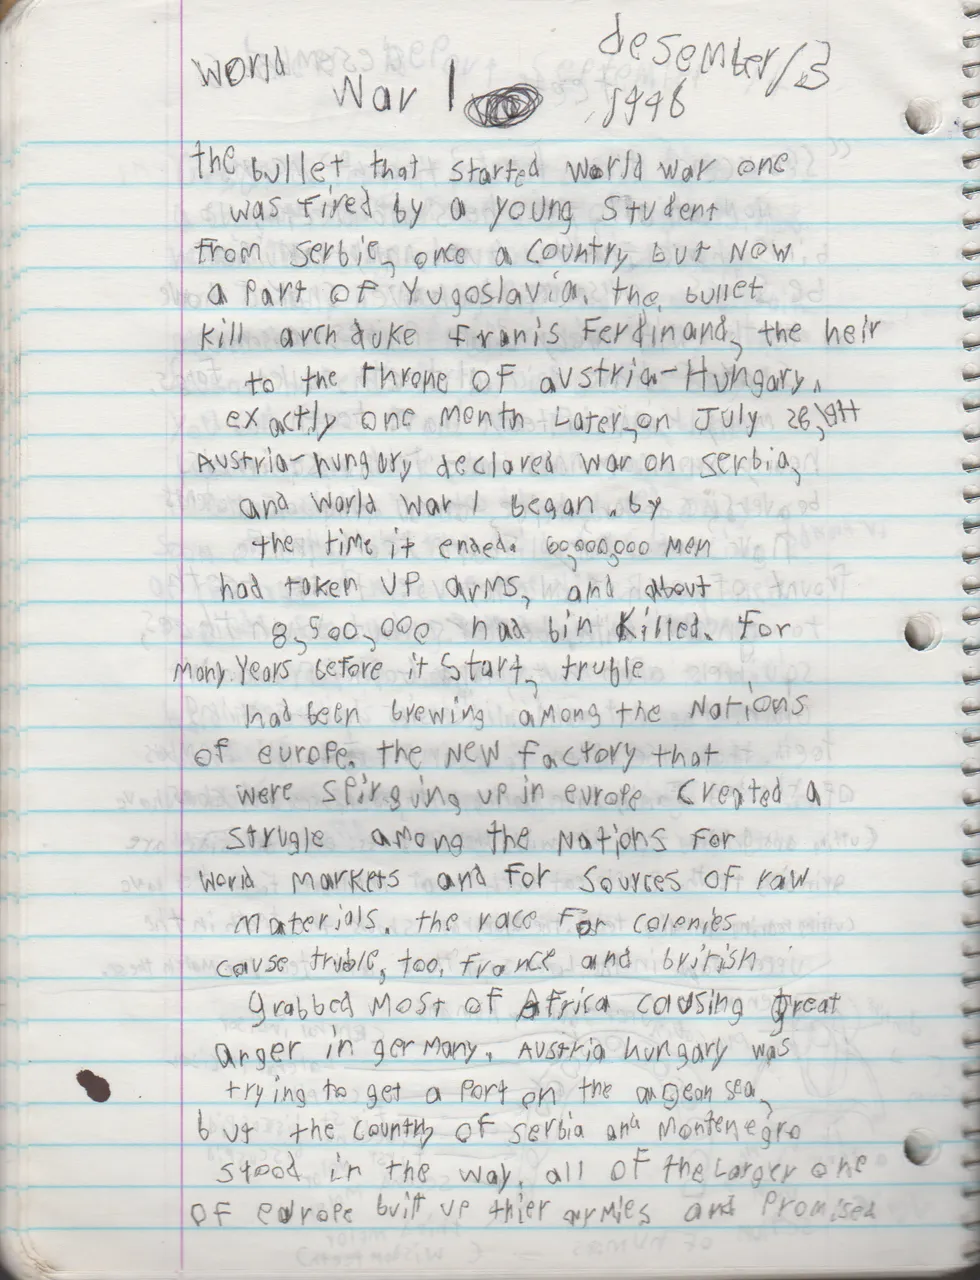 World desember/13
War 1 1998
the bullet that started World war one
was fired by a young student
from serbie, once a country, but now
a part of Yugoslavia. the bullet
kill arch duke franis Ferdinand, the heir
to the throne of avstria-Hungary.
exactly one month Later, on July 28, 1914
Austria-hungary declared war on serbia,
and World War 1 began. by
the time it ended. 60,000,000 men
had taken up arms, and about
8,500,000 had bin killed. for
many years before it start, truble
had been brewing among the Nations
of europe. the new factory that
were spirging up in europe created a
strugle among the nations for
world markets and for sources of raw
materials. the race for colenies
cause truble, too, france and british
grabbed most of Africa causing great
anger in germany. Austria hungary was
trying to get a port on the aegean sea,
but the country of serbia and montenegro
stood in the way. all of the Larger one
of europe built up thier armies and promised